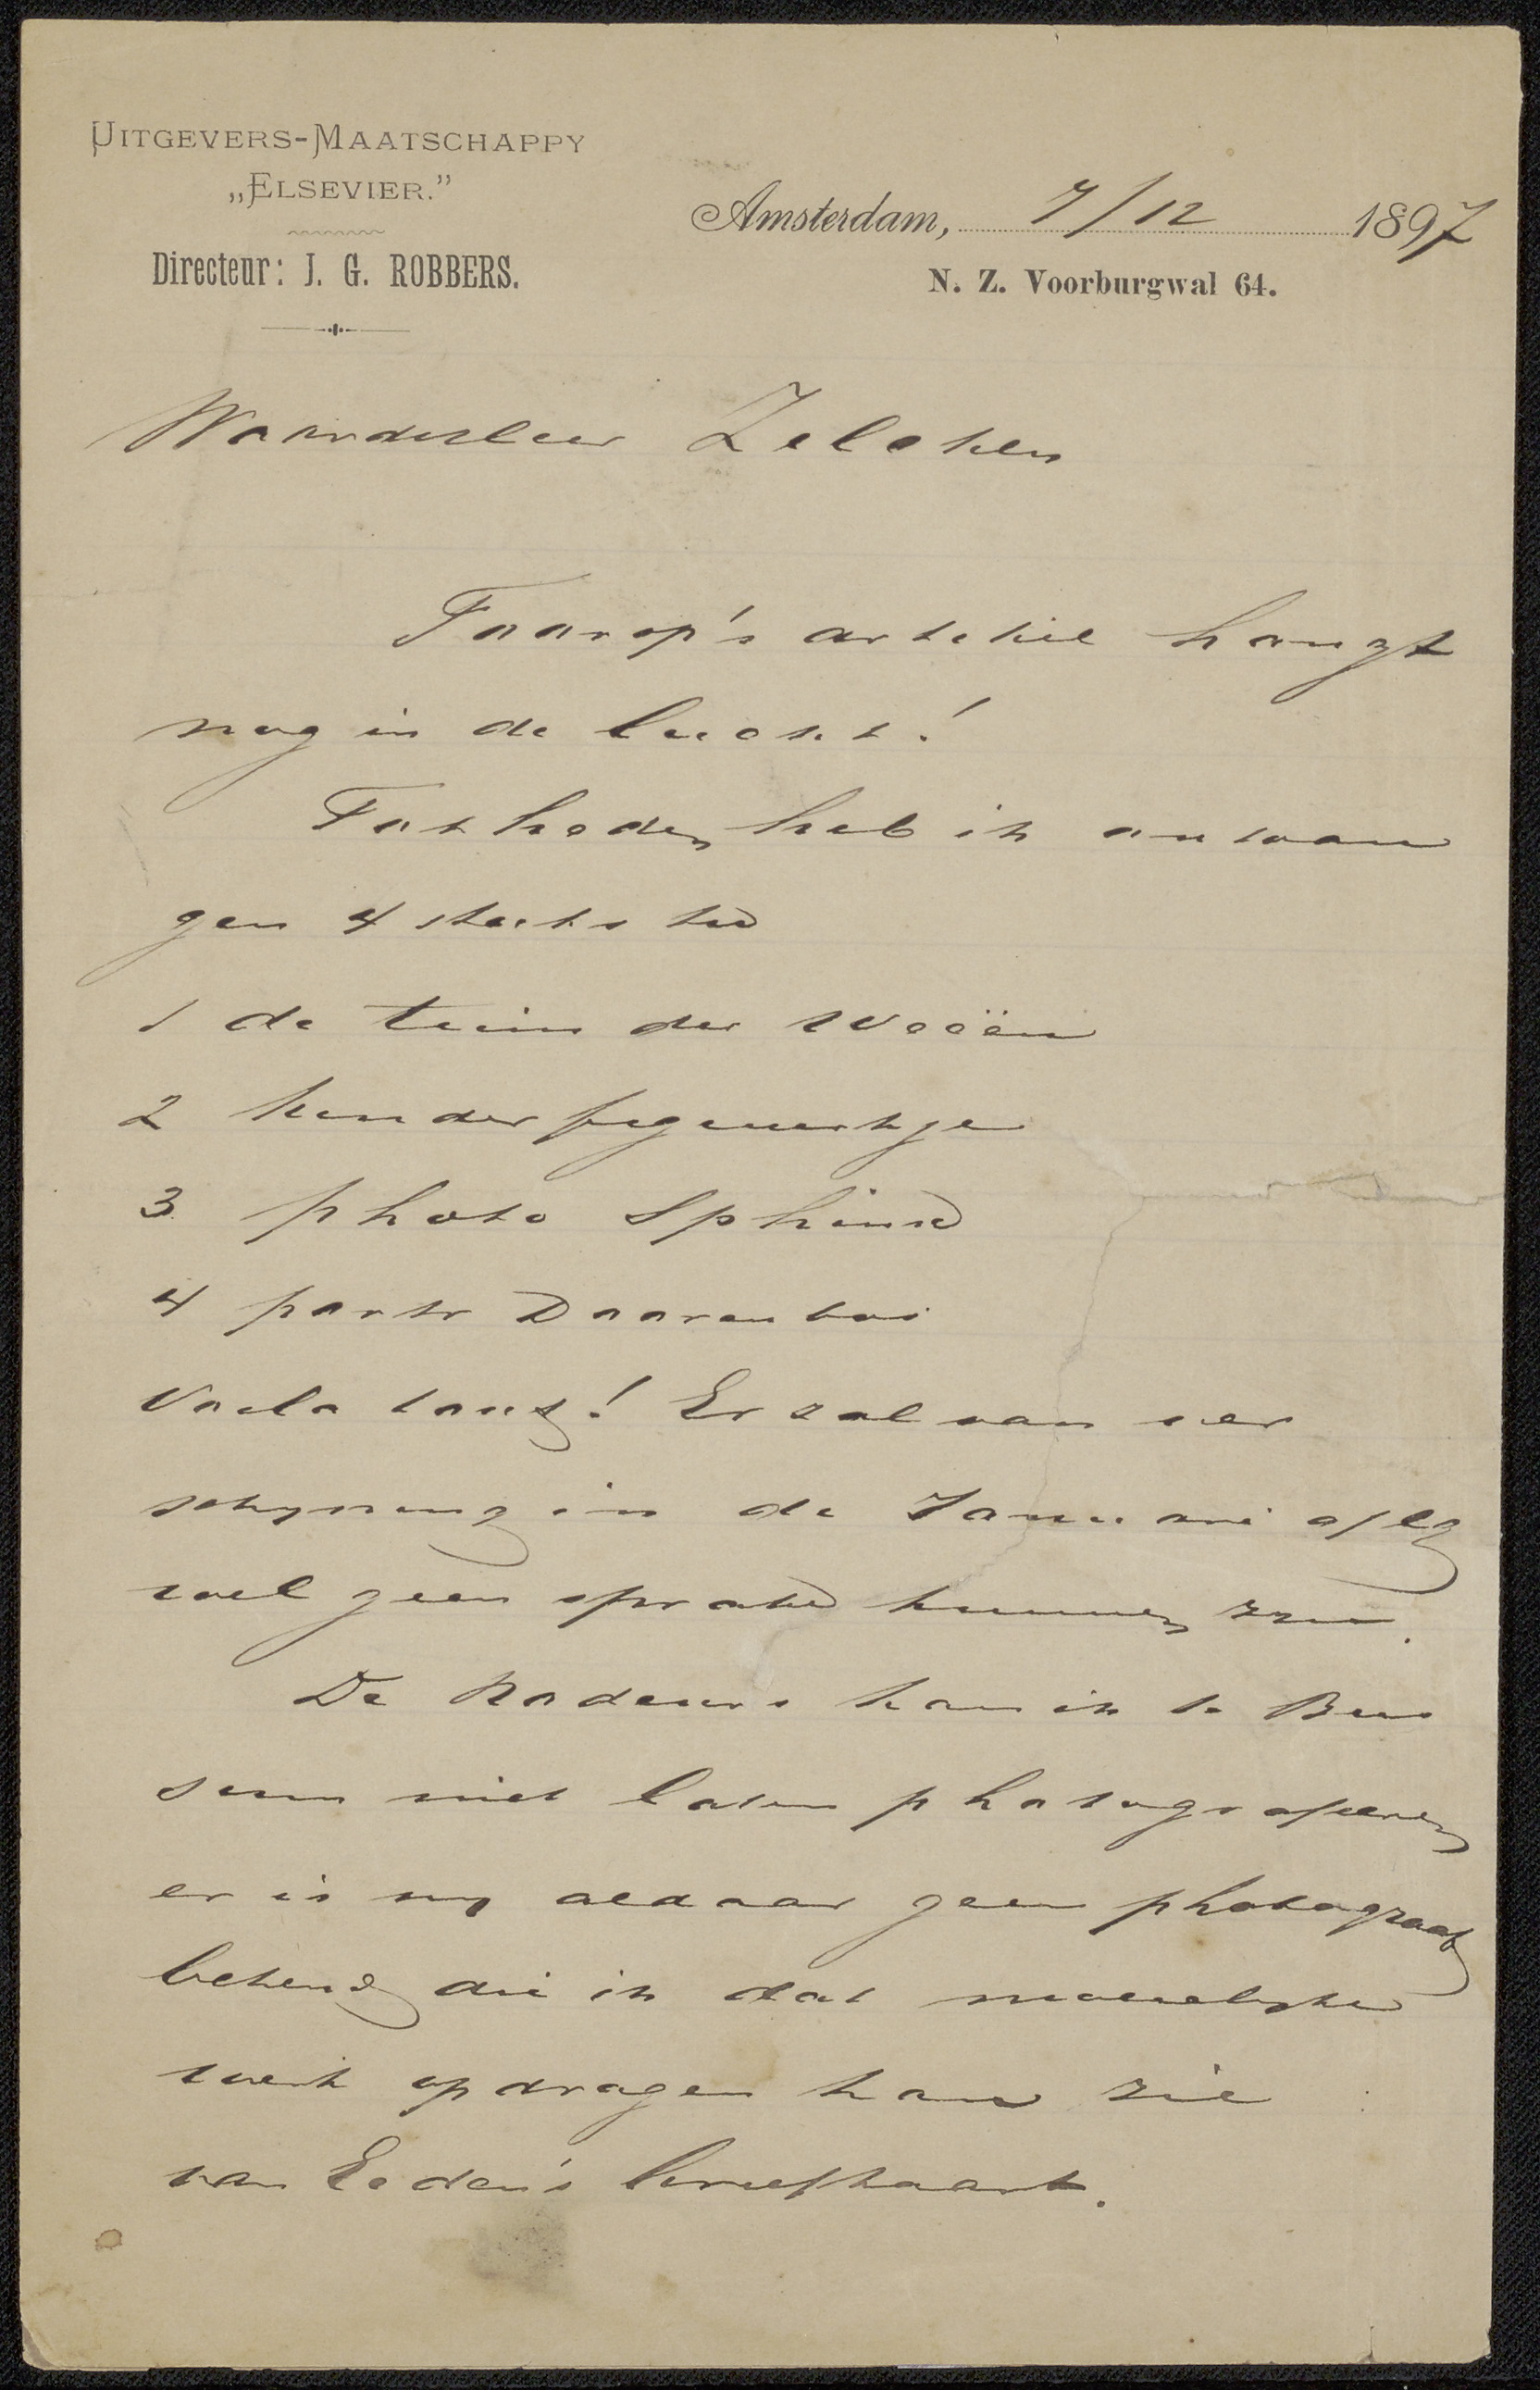 UITGEVERS-MAATSCHAPPY
„ELSEVIER.”
Directeur: J. G. ROBBERS.
Amsterdam, 7/12 1897
N. Z. Voorburgwal 64.
Waarde heer Zilcken
Toorop's artikel hangt
nog in de lucht!
Tot heden heb ik ontvan
gen 4 stuks
1 de tuin der weeën
2 kinderfiguurtje
3 photo Sphinx
4 portr Daarenboi
Voila tout! Er zal van ver
schyning in de Januari aflg
wel geen sprake kunnen zyn.
De Rodeurs kan ik te Bus
sum niet laten photografeeren
er is my aldaar geen photograaf
bekend, die ik dat moeielyke
werk opdragen kan zie
van Eeden's briefkaart.